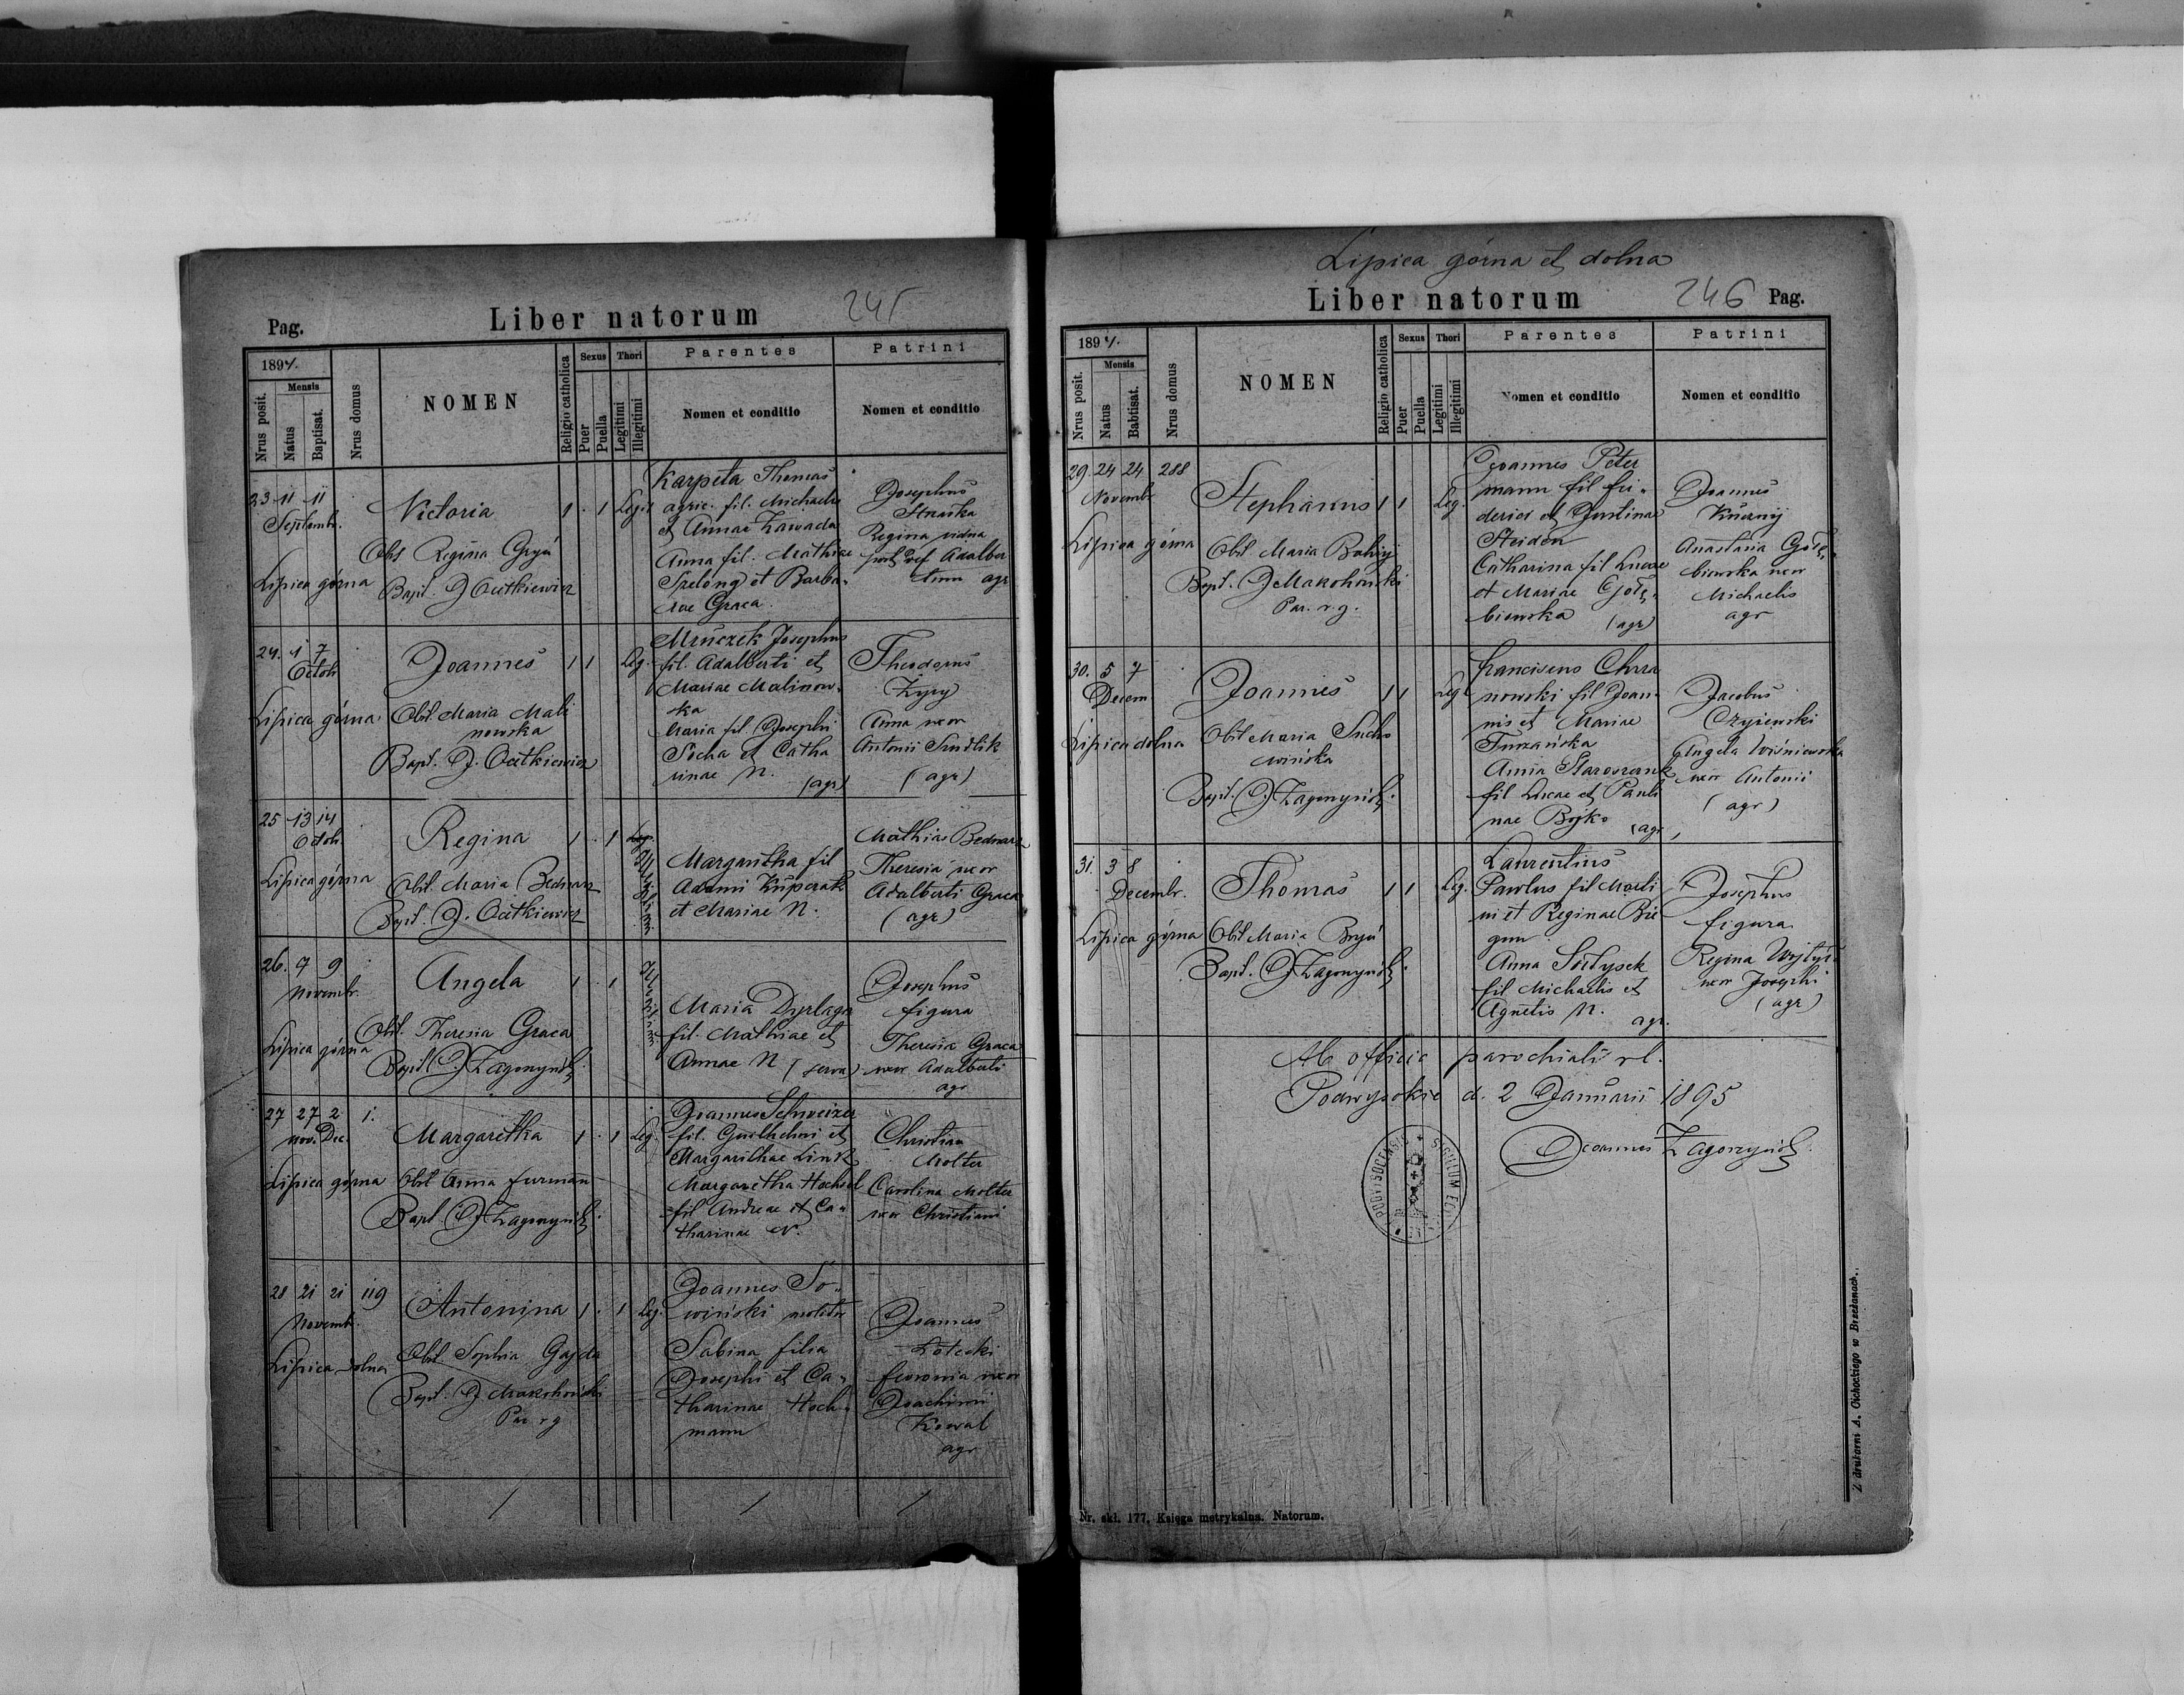 Pag.
Liber natorum
245
1894.
Nrus posit.
Mensis
Natus
Baptisat.
Nrus domus
NOMEN
Religio catholica
Sexus
Puer
Puella
Thori
Legitimi
Illegitimi
Parentes
Nomen et conditio
Patrini
Nomen et conditio
23 11 11
Septembr.
Lipica górna
Victoria
Obs Regina Gryń
Bapt. J Ocetkiewicz
1 . 1 Leg.
Karpeta Thomas
agric. fil. Michaelis
et Annae Zawada
Anna fil. Mathiae
Szeląng et Barba-
rae Graca.
Josephus
Regina vidua
post def Adalber
tum agr
24. 1 7
Octob
Lipica górna
Joannes
Obst. Maria Mali
nowska
Bapt. J. Ocetkiewicz
1 1 Leg.
Mruczek Josephus
fil. Adalberti et
Mariae Malinow-
ska
Maria fil. Josephi
Socha et Catha
rinae N. (agr)
Theodorus
Zyzy
Anna uxor
Antonii Smolik
(agr)
25 13 14
Octob
Lipica górna
Regina
Obst. Maria Bednarz
Bapt. J. Ocetkiewicz
1 . 1 Leg.
Illegitimi
Margaritha fil
Adami Kuperak
et Mariae N.
Mathias Bednarz
Theresia uxor
Adalberti Graca
(agr)
26. 9 9
Novembr.
Lipica górna
Angela
Obst. Theresia Graca
Bapt. J. Zagorzyński
1 . 1
Illegitimi
Maria Dyrlaga
fil. Mathiae et
Annae N (serva)
Josephus
figura
Theresia Graca
uxor Adalberti
agr
27 27 2 1.
Nov. Dec.
Lipica górna
Margaretha
Obst Anna furmann
Bapt. J. Zagorzyński
1 . 1 Leg.
Joannes Schweizer
fil. Guilhelmi et
Margarithae Link
Margaretha Hochsel
fil Andreae et Ca-
tharinae N.
Christian
Molter
Carolina Molter
uxor Christiani
28 21 21 119
Novemb.
Lipica dolna
Antonina
Obst Sophia Gajda
Bapt. J Makohoński
Par r g
1 . 1 Leg.
Joannes So-
wiński molitor
Sabina filia
Josephi et Ca-
tharinae Hoch-
mann
Joannes
Lotocki
fevronia uxor
Joachimi
Kowal
agr
Lipica górna et dolna
Liber natorum
246 Pag.
1894.
Nrus posit.
Mensis
Natus
Babtisat.
Nrus domus
NOMEN
Religio catholica
Sexus
Puer
Puella
Thori
Legitimi
Illegitimi
Parentes
Nomen et conditio
Patrini
Nomen et conditio
29. 24 24 288
Novembr
Lipica górna
Stephanus
Obst Maria Bahrij
Bapt. J Makohoński
Par. r. g.
1 1 Leg.
Joannes Peter
mann fil fri-
derici et Justinae
Steiden
Catharina fil Lucae
et Mariae Gołę-
biowska (agr)
Joannes
Kucznij
Anastasia Gołę-
biowska uxor
Michaelis
agr
30. 5 7
Decem
Lipica dolna
Joannes
Obst Maria Sucho
wińska
Bapt. J. Zagorzyński.
1 1 Leg
franciscus Chrza
nowski fil Joan-
nis et Mariae
Turzańska
Anna Staroszczuk
fil Lucae et Pauli
nae Bojko (agr)
Jacobus
Czyżewski
Angela Wiśniewska
uxor Antonii
(agr)
31. 3 8
Decembr.
Lipica górna
Thomas
Obst Maria Bryń
Bapt. J. Zagorzyński.
1 1 Leg.
Laurentius
Pawlus fil Marti
ni et Reginae Bie
gun
Anna Sołtysek
fil Michaelis et
Agnetis N. agr.
Josephus
figura
Regina Wojtyś
uxor Josephi
(agr)
Ab officio parochiali r. l.
Podwysokie d. 2 Januarii 1895
Joannes Zagorzyński
Z drukarni A. Cichockiego w Brzeżanach.
Nr. skł. 177. Księga metrykalna. Natorum.